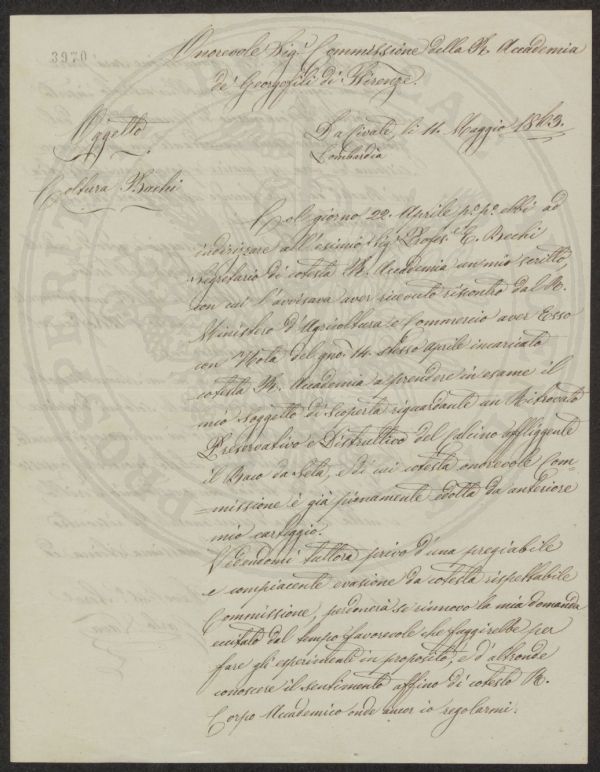 3970
Onorevole Sig.ʳ Commissione della R. Accademia
de' Georgofili di Firenze.
Oggetto
Da Sivate li 11. Maggio 1873.
Lombardia
Coltura Bachi
Col giorno 22. Aprile p.º p.º ebbi ad
indirizzare all'esimio Sig.ʳ Profes.ʳ E. Bechi
Segretario di cotesta R. Accademia un mio scritto,
con cui l'avvisava aver ricevuto riscontro dal R.
Ministero d'Agricoltura e Commercio aver Esso
con Nota del gno. 14. stesso Aprile incaricato
cotesta R. Accademia a prendere in esame il
mio soggetto di scoperta riguardante un Ritrovato
Preservativo e Distruttivo del Calcino affliggente
il Baco da Seta, e di cui cotesta onorevole Com-
=missione è già pienamente edotta da anteriore
mio carteggio.
Vedendomi tuttora privo d'una pregiabile
e compiacente evasione da cotesta rispettabile
Commissione, perdonerà se rinnovo la mia domanda
eccitato dal tempo favorevole che fuggirebbe per
fare gli esperimenti in proposito, e d'altronde
conoscere il sentimento affino di cotesto R.
Corpo Accademico onde ancor io regolarmi.